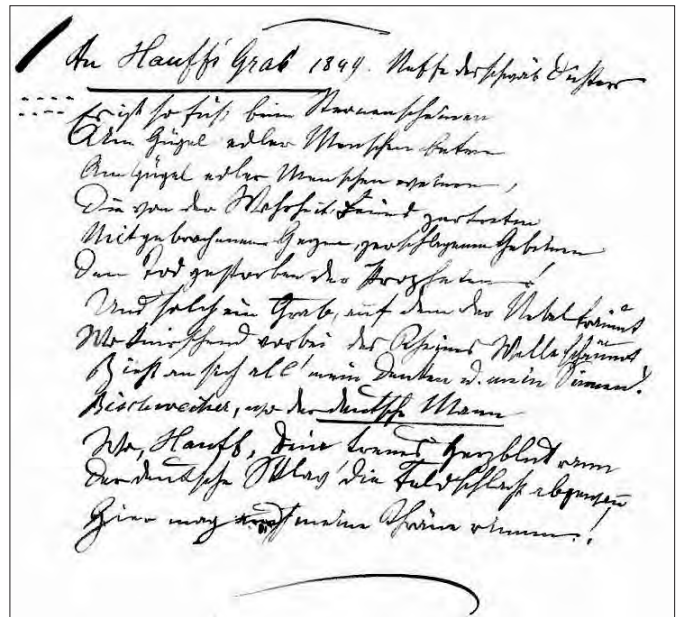 An Hauff's Grab 1849. Neffe des schwäb Dichters
Es ist so süß, beim Sternenscheinen
Am Hügel edler Menschen beten
Am Hügel edler Menschen weinen,
Die von der Wahrheit Feind zertreten
Mit gebrochenem Herzen, zerschlagenen Gebeinen
Den Tod gestorben der Propheten!
Und solch ein Grab, auf dem der Nebel träumt
Wo knirschend vorbei des Rheines Welle schäumt
Zieht an sich all' mein Denken u. mein Sinnen!
Bischweiler, wo der deutsche Mann
Wo, Hauff, Dein treues Herzblut rann
Der deutsche Sklav' die Feldschlacht
Hier mag auch meine Thräne rinnen!